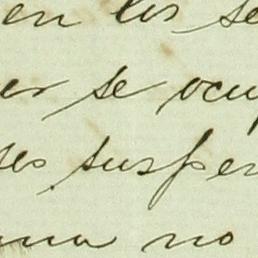 en los se
er se ocup
ses susper
una no